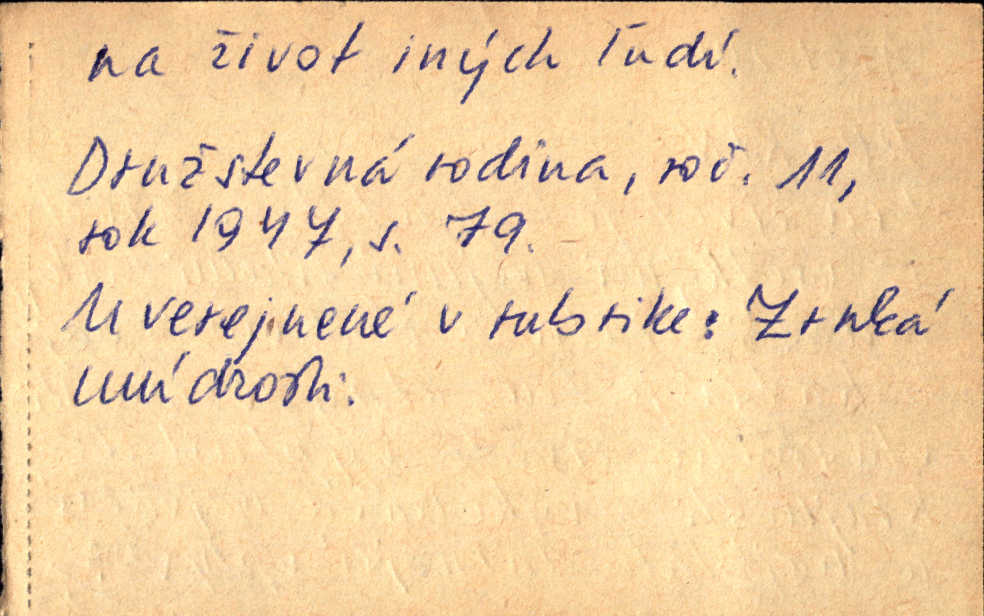 na život iných ľudí.
Družstevná rodina, roč. 11,
rok 1947, s. 79.
Uverejnené v rubrike: Zrnká
múdrosti.